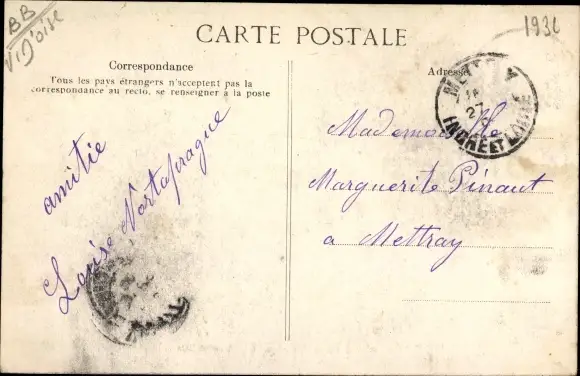 BB
V. D'oise
1936
CARTE POSTALE
Correspondance
Tous les pays étrangers n'acceptent pas la
correspondance au recto, se renseigner à la poste
Adresse
METTRAY
27
INDRE ET LOIRE
amitie
Louise
Mademoiselle
Marguerite Pinaut
a Mettray